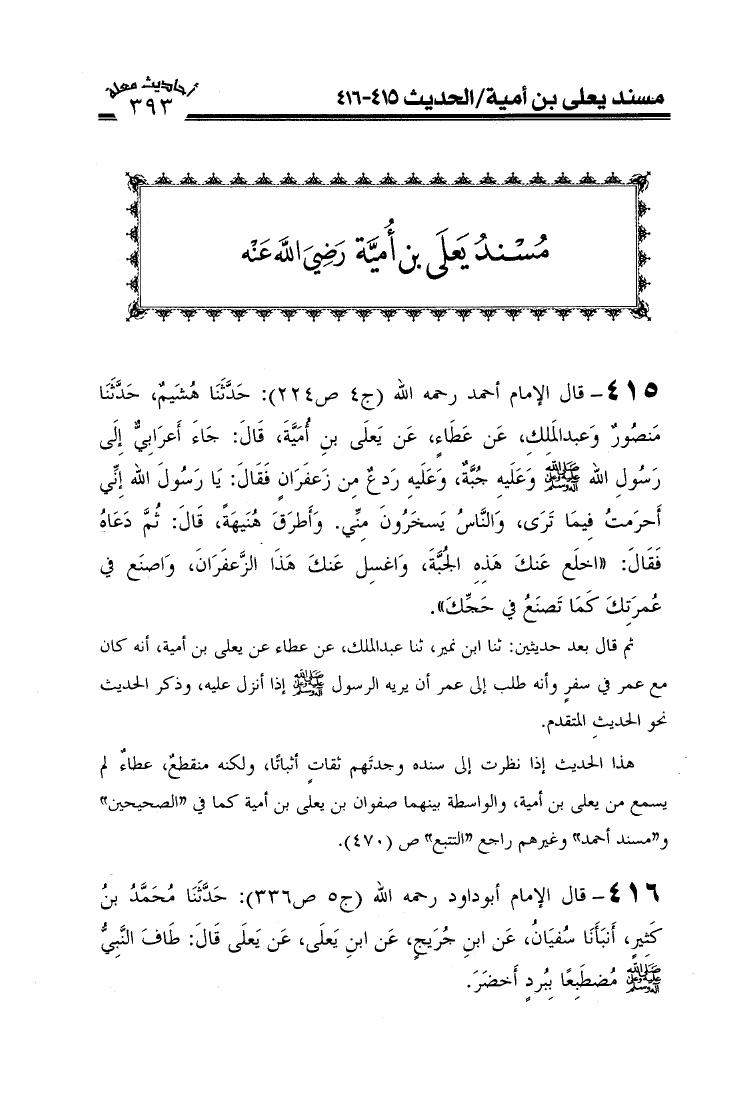 مسند يعلى بن أمية/الحديث ٤١٥-٤١٦
أحاديث معلة
٣٩٣
مُسْنَدُ يَعْلَى بن أُمَيَّة رَضِيَ اللَّه عَنْه
٤١٥- قال الإمام أحمد رحمه الله (ج٤ ص٢٢٤): حَدَّثَنَا هُشَيمٌ، حَدَّثَنَا
مَنصُورٌ وَعبدالملك، عَن عَطَاءٍ، عَن يَعلَى بنِ أُمَيَّةَ، قَالَ: جَاءَ أَعرَابِيٌّ إِلَى
رَسُولِ الله ﷺ وَعَلَيهِ جُبَّةٌ، وَعَلَيهِ رَدعٌ مِن زَعفَرَانٍ فَقَالَ: يَا رَسُولَ الله إِنِّي
أَحرَمتُ فِيمَا تَرَى، وَالنَّاسُ يَسخَرُونَ مِنِّي. وَأَطرَقَ هُنَيهَةً، قَالَ: ثُمَّ دَعَاهُ
فَقَالَ: «اخلَع عَنكَ هَذِهِ الجُبَّةَ، وَاغسِل عَنكَ هَذَا الزَّعفَرَانَ، وَاصنَع فِي
عُمرَتِكَ كَمَا تَصنَعُ فِي حَجِّكَ».
ثم قال بعد حديثين: ثنا ابن نمير، ثنا عبدالملك، عن عطاء عن يعلى بن أمية، أنه كان
مع عمر في سفرٍ وأنه طلب إلى عمر أن يريه الرسول ﷺ إذا أنزل عليه، وذكر الحديث
نحو الحديثِ المتقدم.
هذا الحديث إذا نظرت إلى سنده وجدتَهم ثقاتٍ أثباتًا، ولكنه منقطعٌ، عطاءٌ لم
يسمع من يعلى بن أمية، والواسطة بينهما صفوان بن يعلى بن أمية كما في "الصحيحين"
و"مسند أحمد" وغيرهم راجع "التتبع" ص (٤٧٠).
٤١٦- قال الإمام أبوداود رحمه الله (ج٥ ص٣٣٦): حَدَّثَنَا مُحَمَّدُ بنُ
كَثِيرٍ، أَنبَأَنَا سُفيَانُ، عَن ابنِ جُرَيجٍ، عَن ابنِ يَعلَى، عَن يَعلَى قَالَ: طَافَ النَّبِيُّ
ﷺ مُضطَبِعًا بِبُردٍ أَخضَرَ.